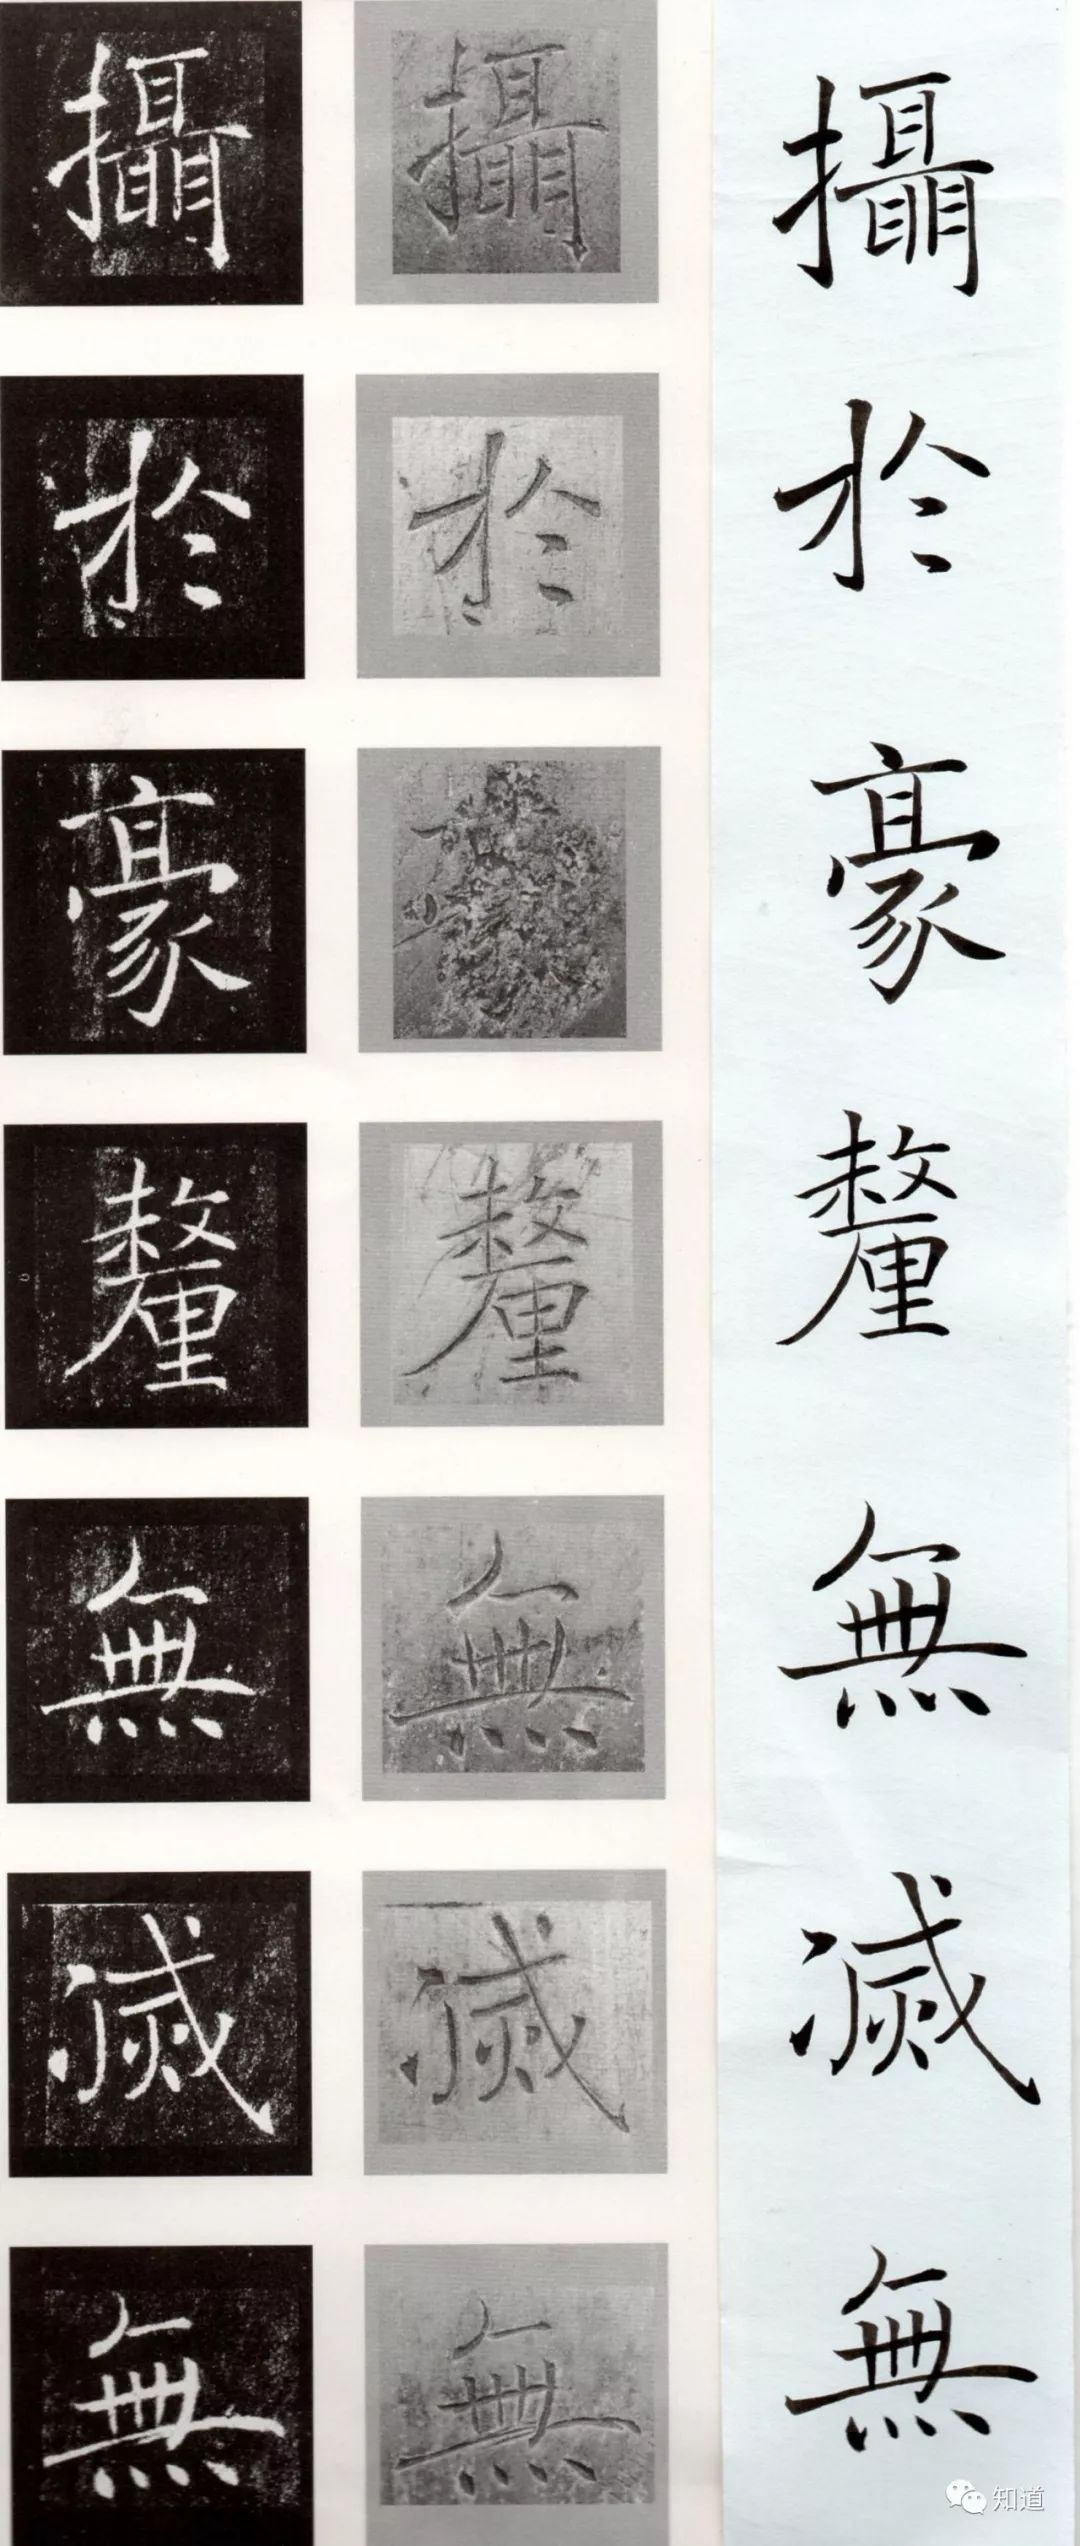 攝於豪釐無滅無
攝於釐無滅無
攝於豪釐無滅無
知道